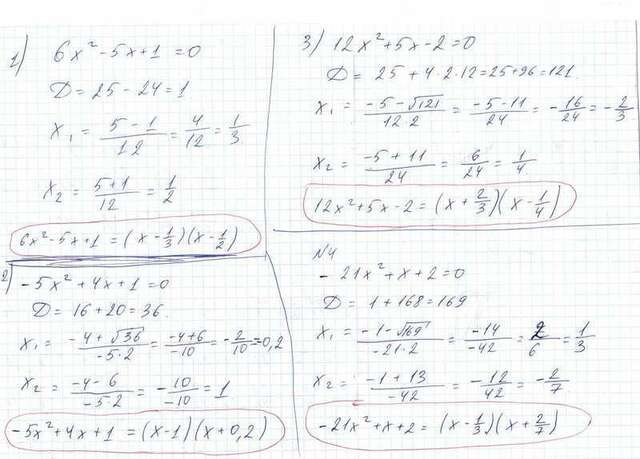 1) 6x² - 5x + 1 = 0
D = 25 - 24 = 1
x₁ = (5 - 1)/12 = 4/12 = 1/3
x₂ = (5 + 1)/12 = 1/2
6x² - 5x + 1 = (x - 1/3)(x - 1/2)
2) -5x² + 4x + 1 = 0
D = 16 + 20 = 36.
x₁ = (-4 + √36)/(-5·2) = (-4+6)/(-10) = -2/10 = 0,2
x₂ = (-4 - 6)/(-5·2) = -10/-10 = 1
-5x² + 4x + 1 = (x - 1)(x + 0,2)
3) 12x² + 5x - 2 = 0
D = 25 + 4·2·12 = 25 + 96 = 121.
x₁ = (-5 - √121)/(12·2) = (-5 - 11)/24 = -16/24 = -2/3
x₂ = (-5 + 11)/24 = 6/24 = 1/4
12x² + 5x - 2 = (x + 2/3)(x - 1/4)
N4
-21x² + x + 2 = 0
D = 1 + 168 = 169
x₁ = (-1 - √169)/(-21·2) = -14/-42 = 2/6 = 1/3
x₂ = (-1 + 13)/(-42) = -12/42 = -2/7
-21x² + x + 2 = (x - 1/3)(x + 2/7)